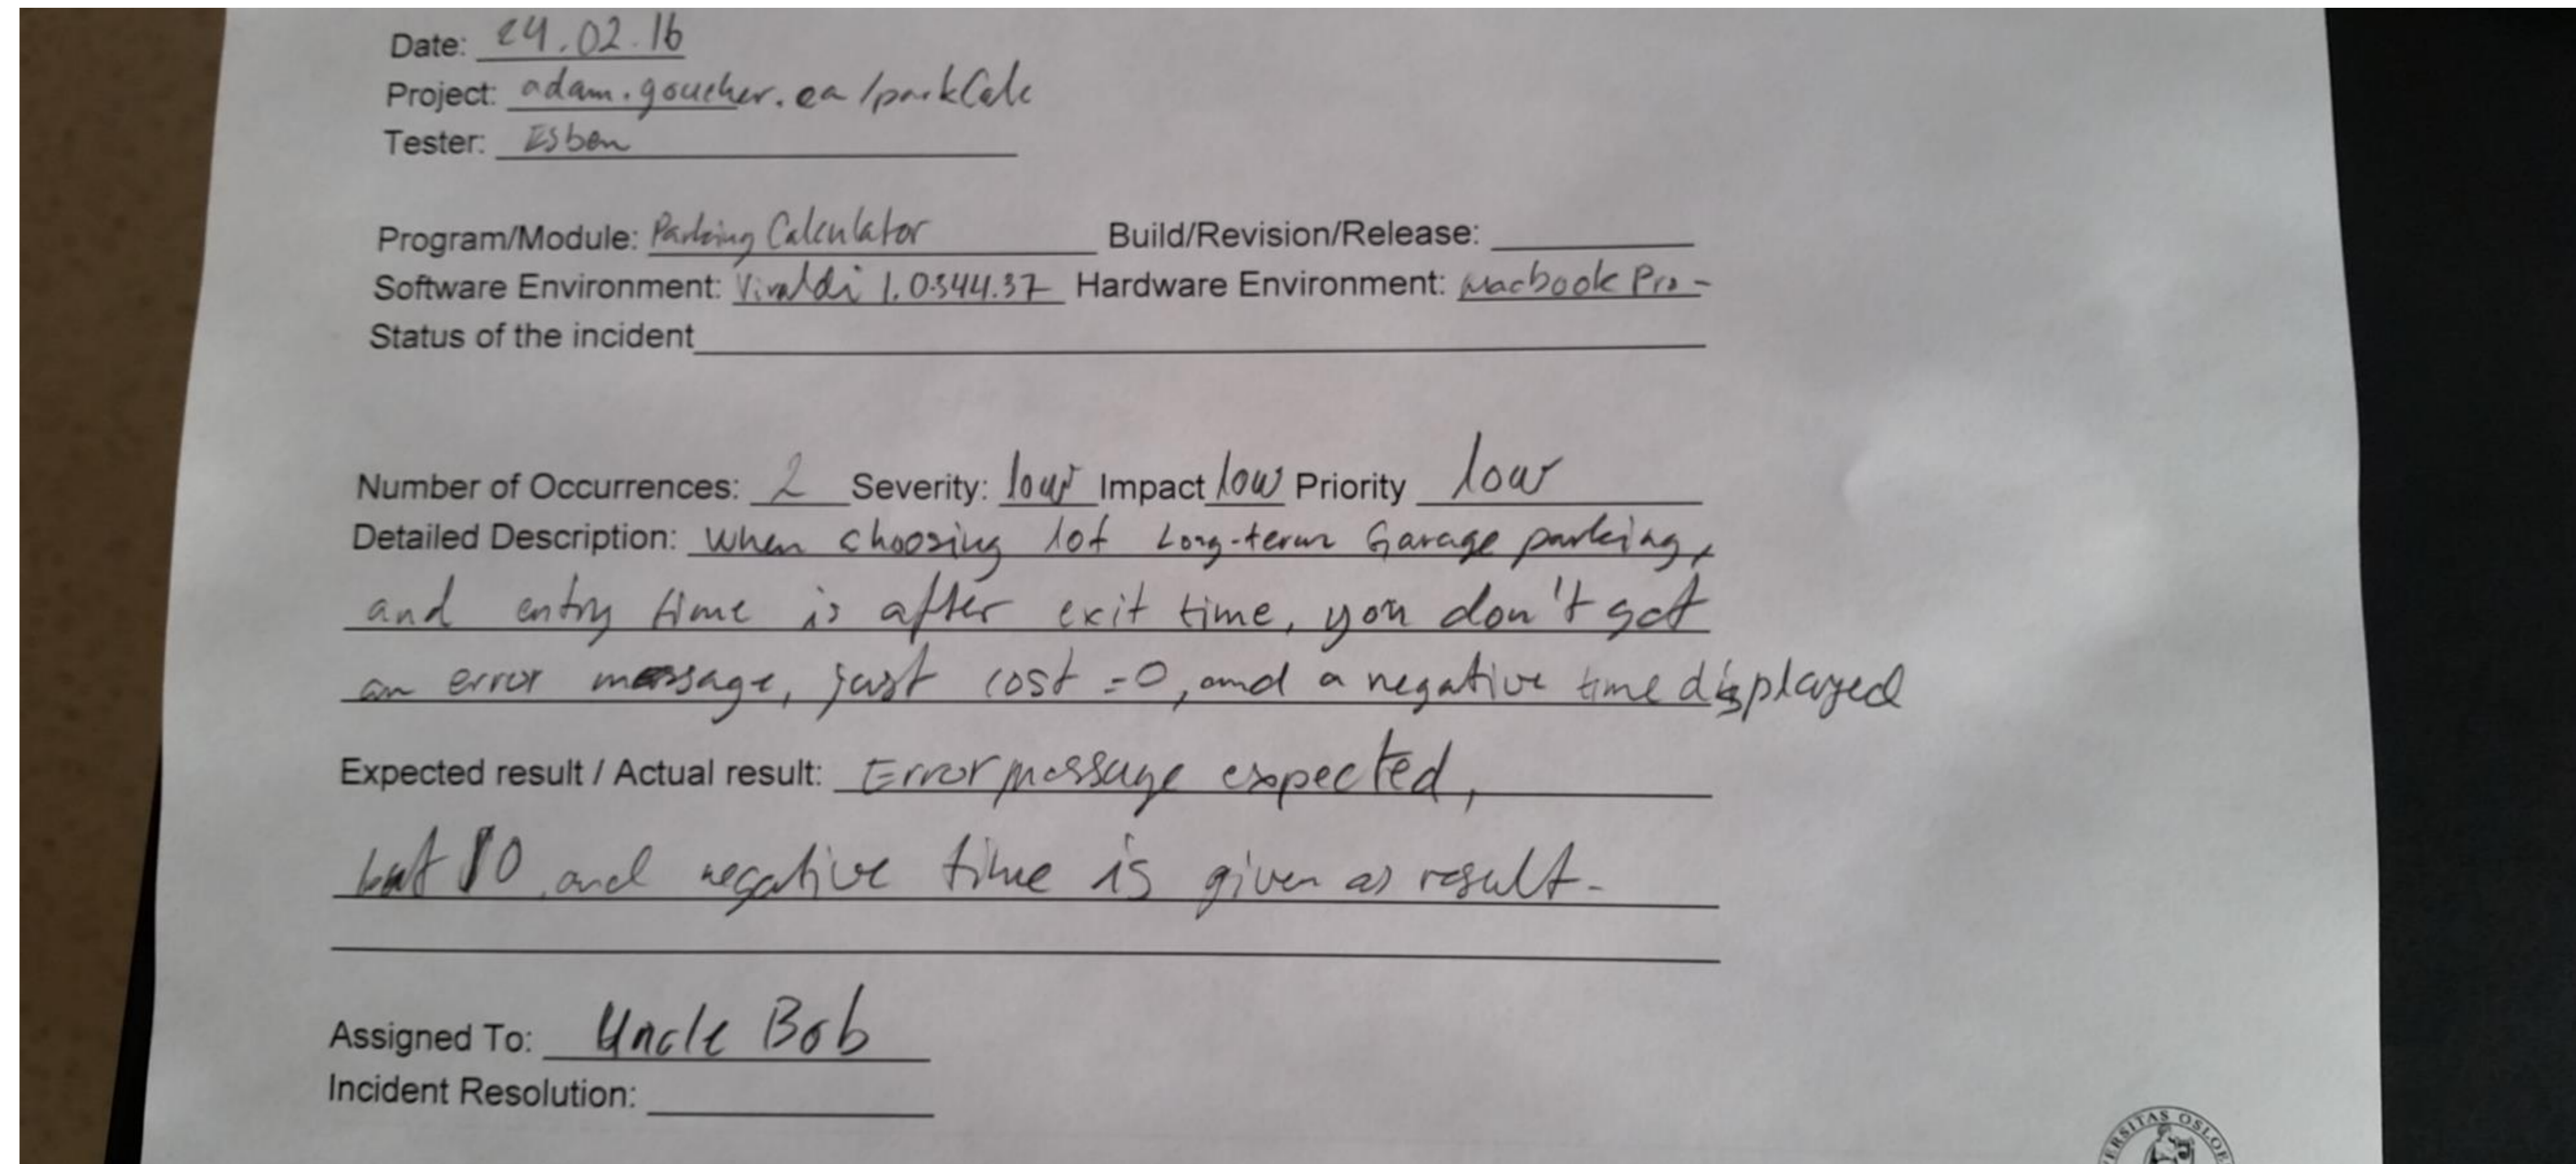 Date: 24.02.16
Project: adam.goucher.ca/parkCalc
Tester: Esben
Program/Module: Parking Calculator Build/Revision/Release:
Software Environment: Vivaldi 1.0.344.37 Hardware Environment: Macbook Pro -
Status of the incident
Number of Occurrences: 2 Severity: low Impact low Priority low
Detailed Description: When choosing lot Long-term Garage parking,
and entry time is after exit time, you don't get
an error message, just cost =0, and a negative time displayed
Expected result / Actual result: Error message expected,
but $0 and negative time is given as result.
Assigned To: Uncle Bob
Incident Resolution:
ERSITAS OSLOE